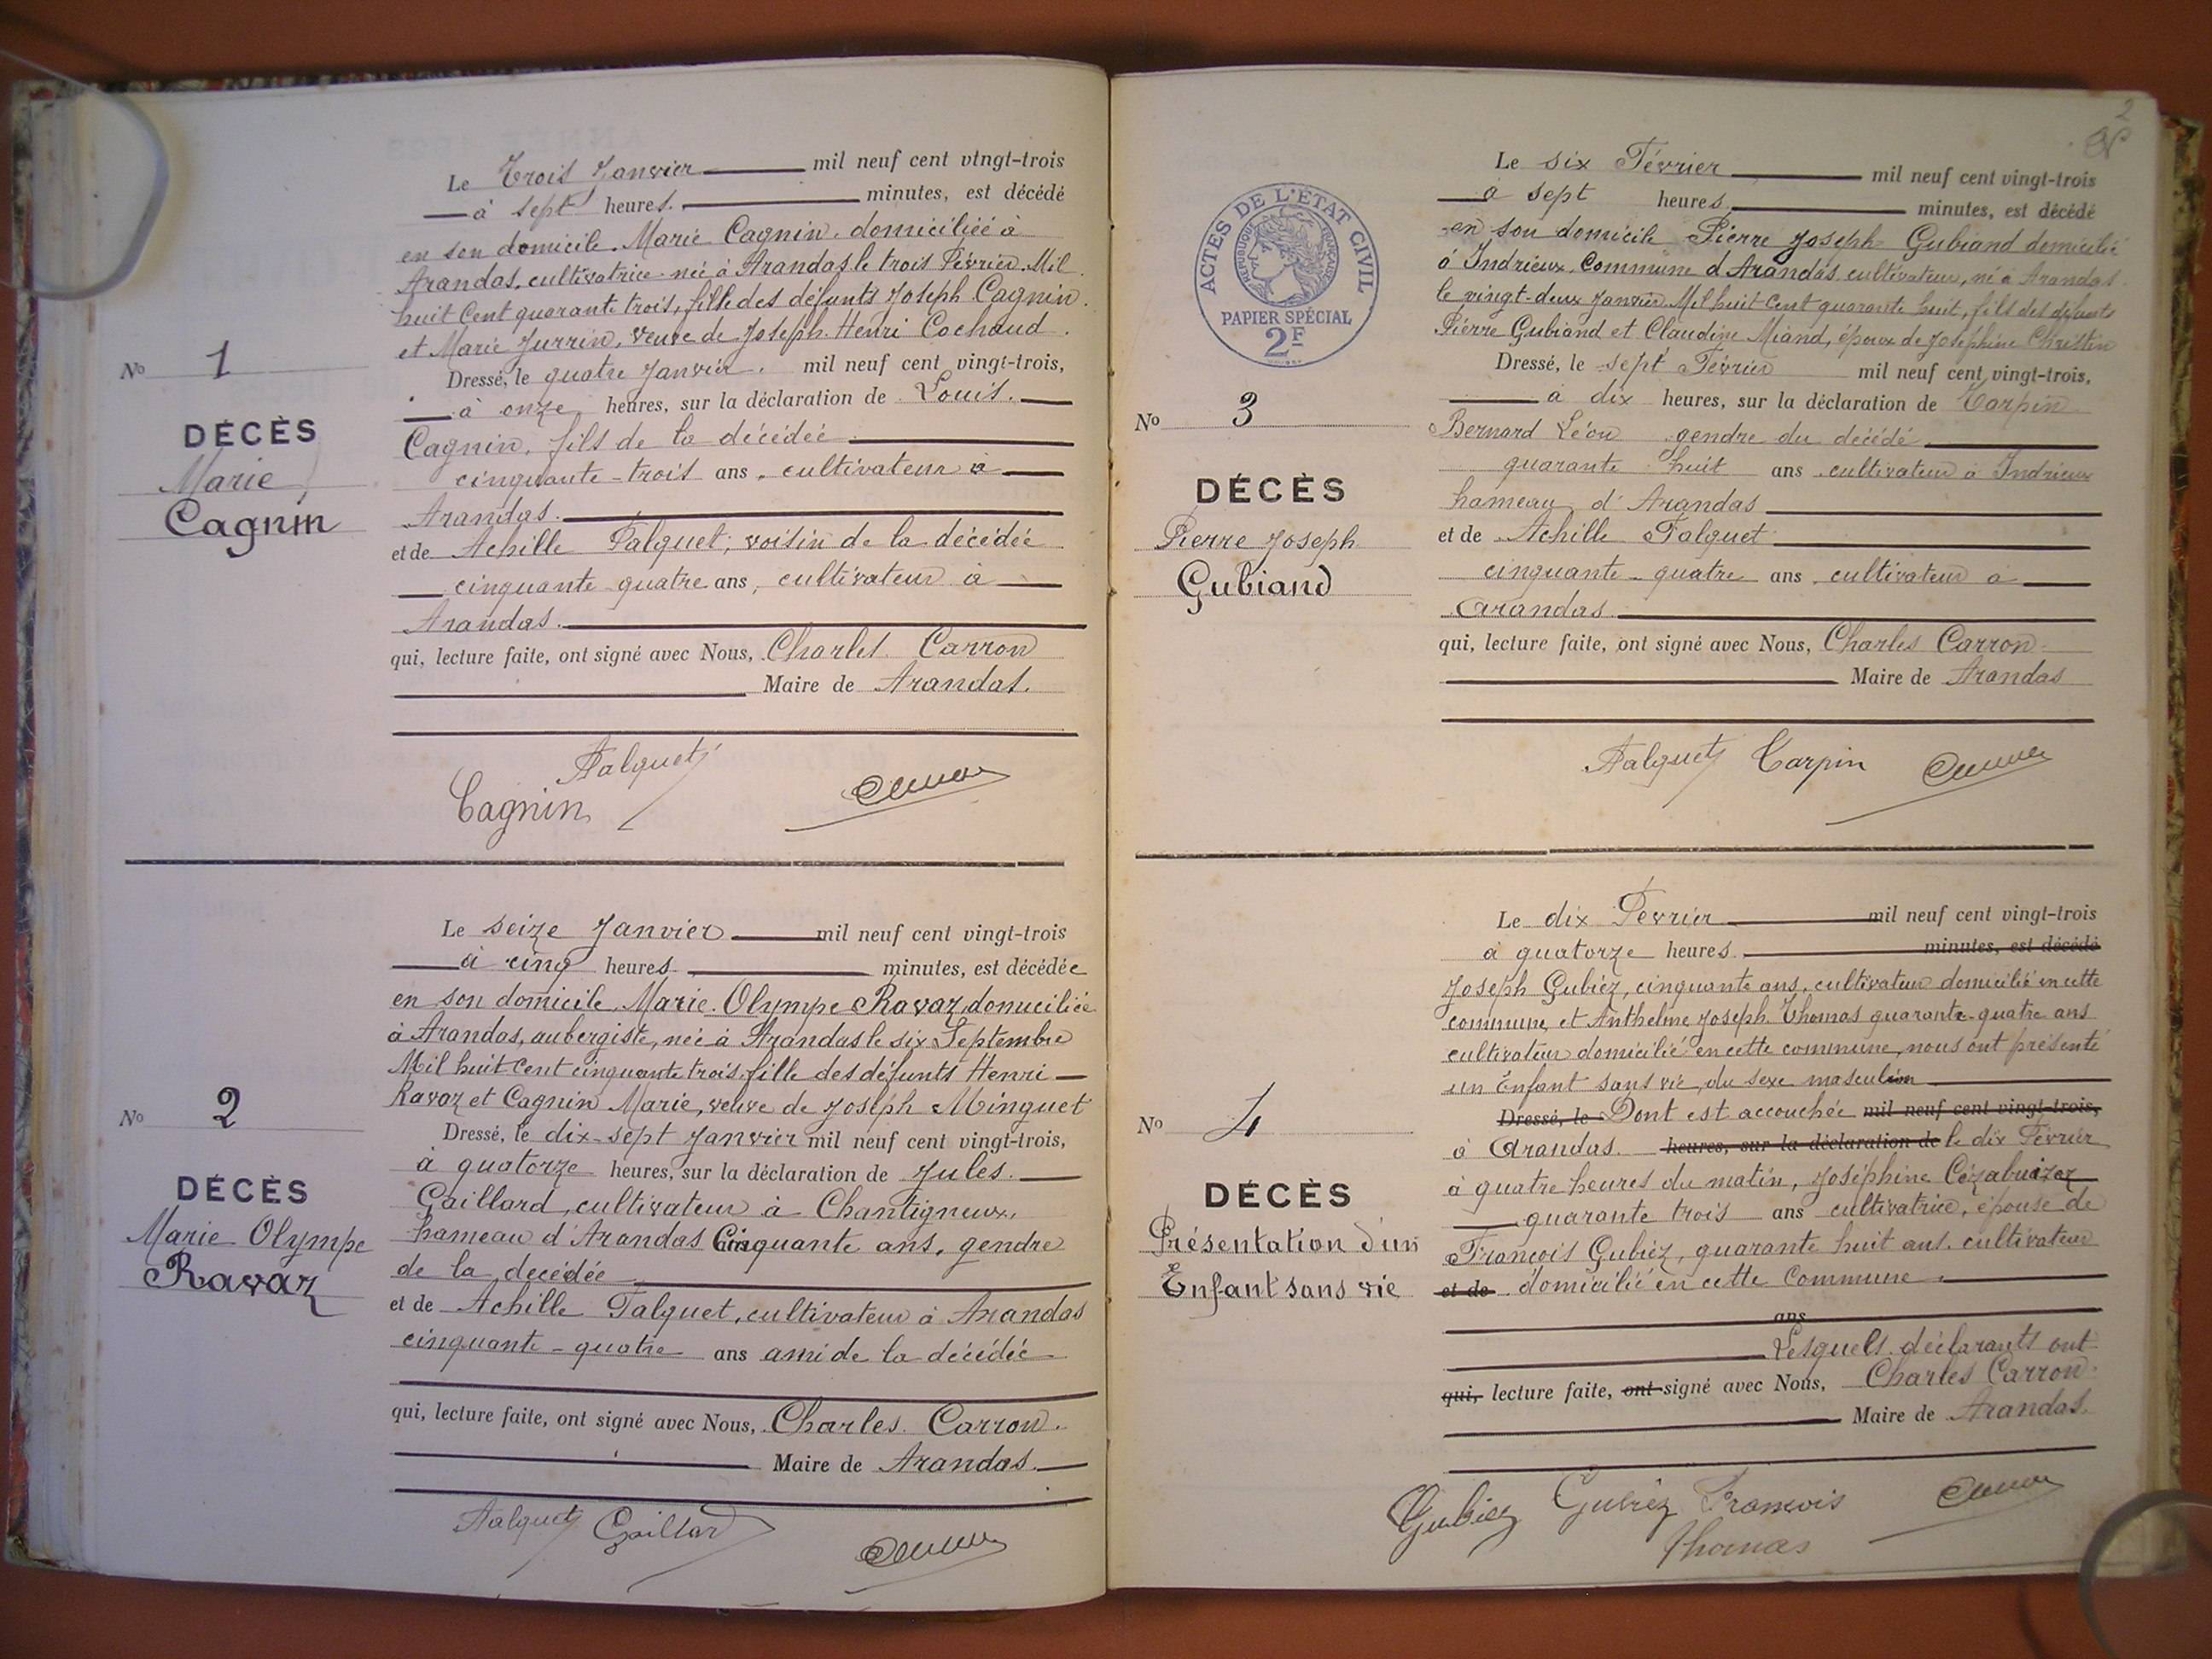 Le Trois Janvier mil neuf cent vingt-trois
à sept heures. minutes, est décédé
en son domicile. Marie Cagnin. domiciliée à
Arandas, cultivatrice née à Arandas le trois Février. Mil
huit Cent quarante trois, fille des défunts Joseph Cagnin.
et Marie Jurrin, veuve de Joseph Henri Cochaud.
Nº 1
Dressé, le quatre Janvier. mil neuf cent vingt-trois,
à onze heures, sur la déclaration de Louis.
DÉCÈS
Cagnin, fils de la décédée
Marie
cinquante-trois ans, cultivateur à
Cagnin
Arandas.
et de Achille Falquet, voisin de la décédée
cinquante-quatre ans, cultivateur à
Arandas.
qui, lecture faite, ont signé avec Nous, Charles Carron
Maire de Arandas.
Falquet
Cagnin
Le seize Janvier mil neuf cent vingt-trois
à cinq heures minutes, est décédée
en son domicile Marie Olympe Ravaz domiciliée
à Arandas, aubergiste, née à Arandas le six Septembre
Mil huit Cent cinquante trois fille des défunts Henri
Ravaz et Cagnin Marie, veuve de Joseph Minguet
Nº 2
Dressé, le dix-sept Janvier mil neuf cent vingt-trois,
à quatorze heures, sur la déclaration de Jules.
DÉCÈS
Gaillard, cultivateur à Chantigneux,
Marie Olympe
hameau d'Arandas Cinquante ans, gendre
Ravaz
de la decédée
et de Achille Falquet, cultivateur à Arandas
cinquante-quatre ans ami de la décédée
qui, lecture faite, ont signé avec Nous, Charles Carron.
Maire de Arandas.
Falquet Gaillard
2
Le six Février mil neuf cent vingt-trois
à sept heures minutes, est décédé
en son domicile Pierre Joseph Gubiand domicilié
à Indrieux, Commune d'Arandas cultivateur, né à Arandas
le vingt-deux Janvier Mil huit Cent quarante huit, fils des défunts
Pierre Gubiand et Claudine Miand, époux de Joséphine Christin
ACTES DE L'ÉTAT CIVIL
RÉPUBLIQUE FRANÇAISE
PAPIER SPÉCIAL
2F
Nº 3
Dressé, le sept Février mil neuf cent vingt-trois,
à dix heures, sur la déclaration de Carpin
Bernard Léon gendre du décédé
DÉCÈS
quarante huit ans cultivateur à Indrieux
hameau d'Arandas
Pierre Joseph
et de Achille Falquet
Gubiand
cinquante-quatre ans cultivateur à
Arandas.
qui, lecture faite, ont signé avec Nous, Charles Carron
Maire de Arandas
Falquet Carpin
Le dix Février mil neuf cent vingt-trois
à quatorze heures minutes, est décédé
Joseph Gubiez, cinquante ans, cultivateur domicilié en cette
commune, et Anthelme Joseph Thomas quarante-quatre ans
cultivateur domicilié en cette commune, nous ont présenté
un Enfant sans vie, du sexe masculin
Nº 4
Dressé, le Dont est accouchée mil neuf cent vingt-trois,
à Arandas. heures, sur la déclaration de le dix Février
DÉCÈS
à quatre heures du matin, Joséphine
quarante trois ans cultivatrice, épouse de
Présentation d'un
François Gubiez, quarante huit ans. cultivateur
Enfant sans vie
et de domicilié en cette Commune.
ans
Lesquels déclarants ont
qui, lecture faite, ont signé avec Nous, Charles Carron
Maire de Arandas.
Gubiez Gubiez François
Thomas